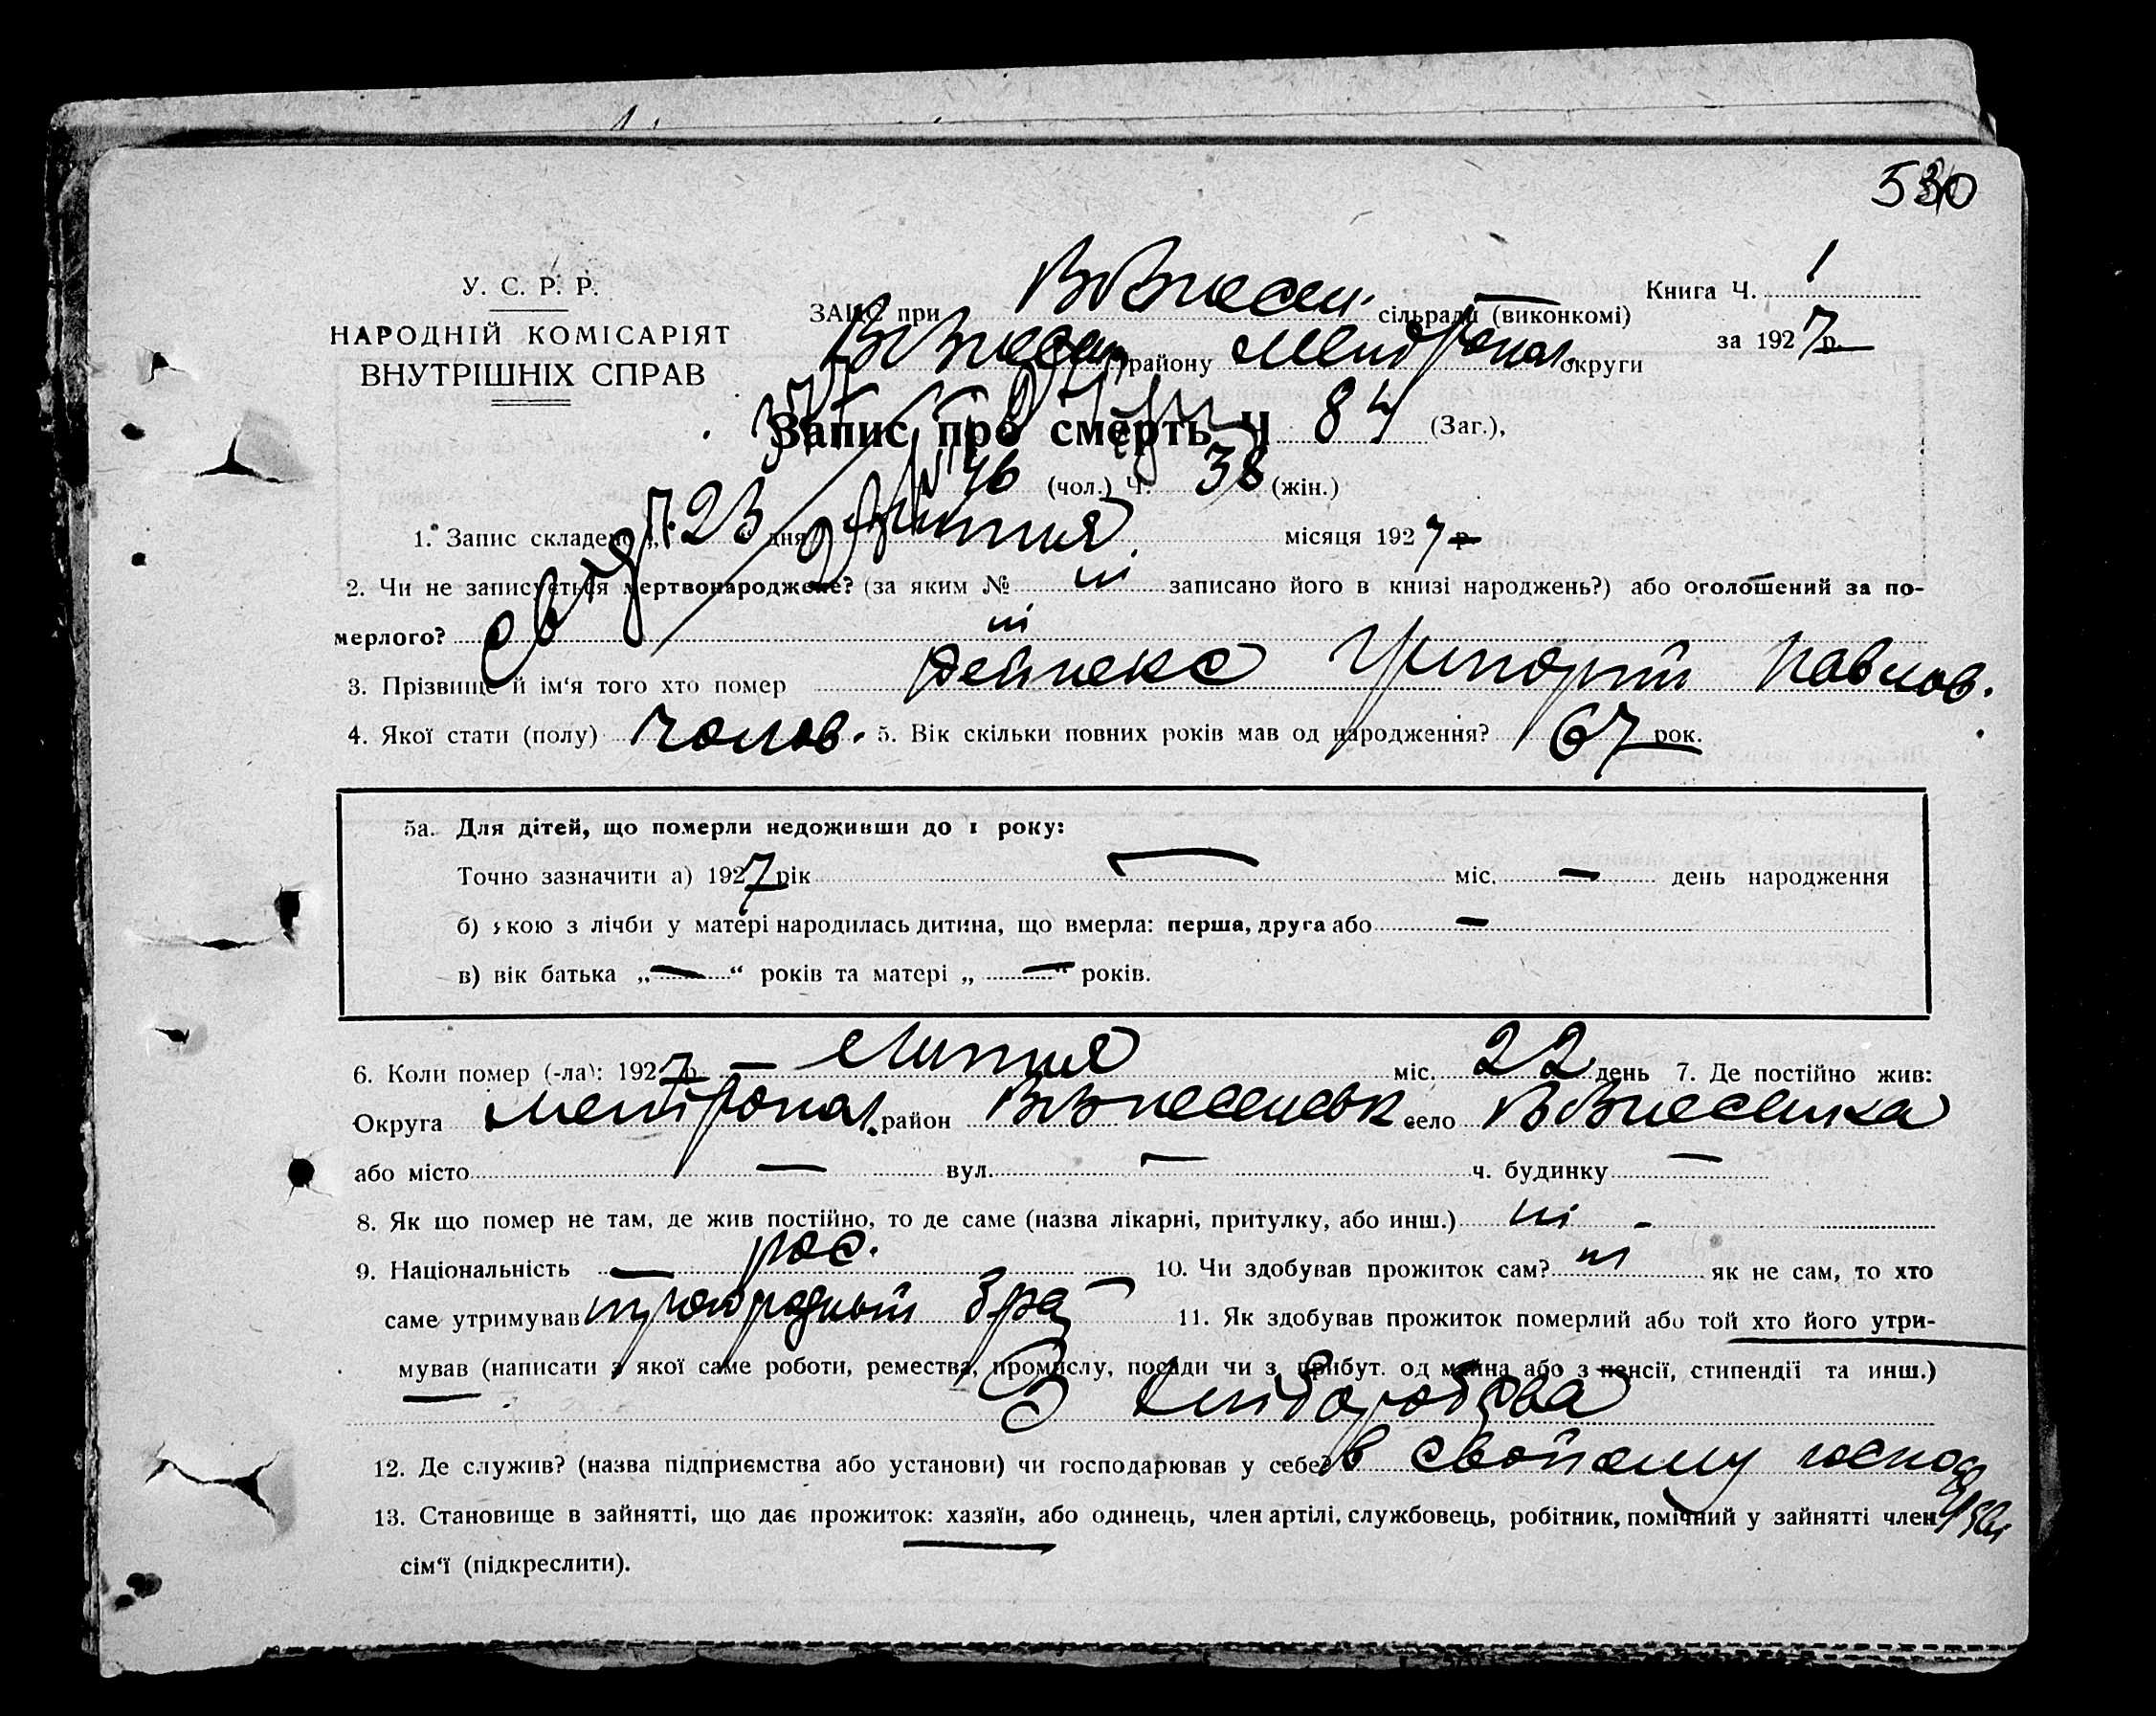 530
У. С. Р. Р.
НАРОДНІЙ КОМІСАРІЯТ
ВНУТРІШНІХ СПРАВ
Книга Ч. 1
за 1927 р.
ЗАЦС при ВВнесен. сільраді (виконкомі)
району Мелітопол. округи
Запис про смерть Ч 84 (Заг.),
46 (чол.) Ч. 38 (жін.)
1. Запис складено „ 23 дня Липня місяця 1927 р
2. Чи не записується мертвонароджене? (за яким № ні записано його в книзі народжень?) або оголошений за по-
мерлого? ні
3. Прізвище й ім'я того хто помер Григорій Павлов.
4. Якої стати (полу) Чолов. 5. Вік скільки повних років мав од народження? 67 рок.
5а. Для дітей, що померли недоживши до 1 року:
Точно зазначити а) 1927 рік — міс. — день народження
б) якою з лічби у матері народилась дитина, що вмерла: перша, друга або —
в) вік батька „—“ років та матері „—“ років.
6. Коли помер (-ла): 1927 р. — Липня міс. 22 день 7. Де постійно жив:
Округа Мелітопол. район ВВнесенськ село ВВнесенка
або місто — вул. — ч. будинку —
8. Як що помер не там, де жив постійно, то де саме (назва лікарні, притулку, або инш.) ні -
9. Національність — рос. 10. Чи здобував прожиток сам? ні як не сам, то хто
саме утримував 11. Як здобував прожиток померлий або той хто його утри-
мував (написати з якої саме роботи, ремества, промислу, посади чи з прибут. од майна або з пенсії, стипендії та инш.)
З хліборобства
12. Де служив? (назва підприємства або установи) чи господарював у себе? в свойому господарстві
13. Становище в зайнятті, що дає прожиток: хазяїн, або одинець, член артілі, службовець, робітник, помічний у зайнятті член
сім'ї (підкреслити).